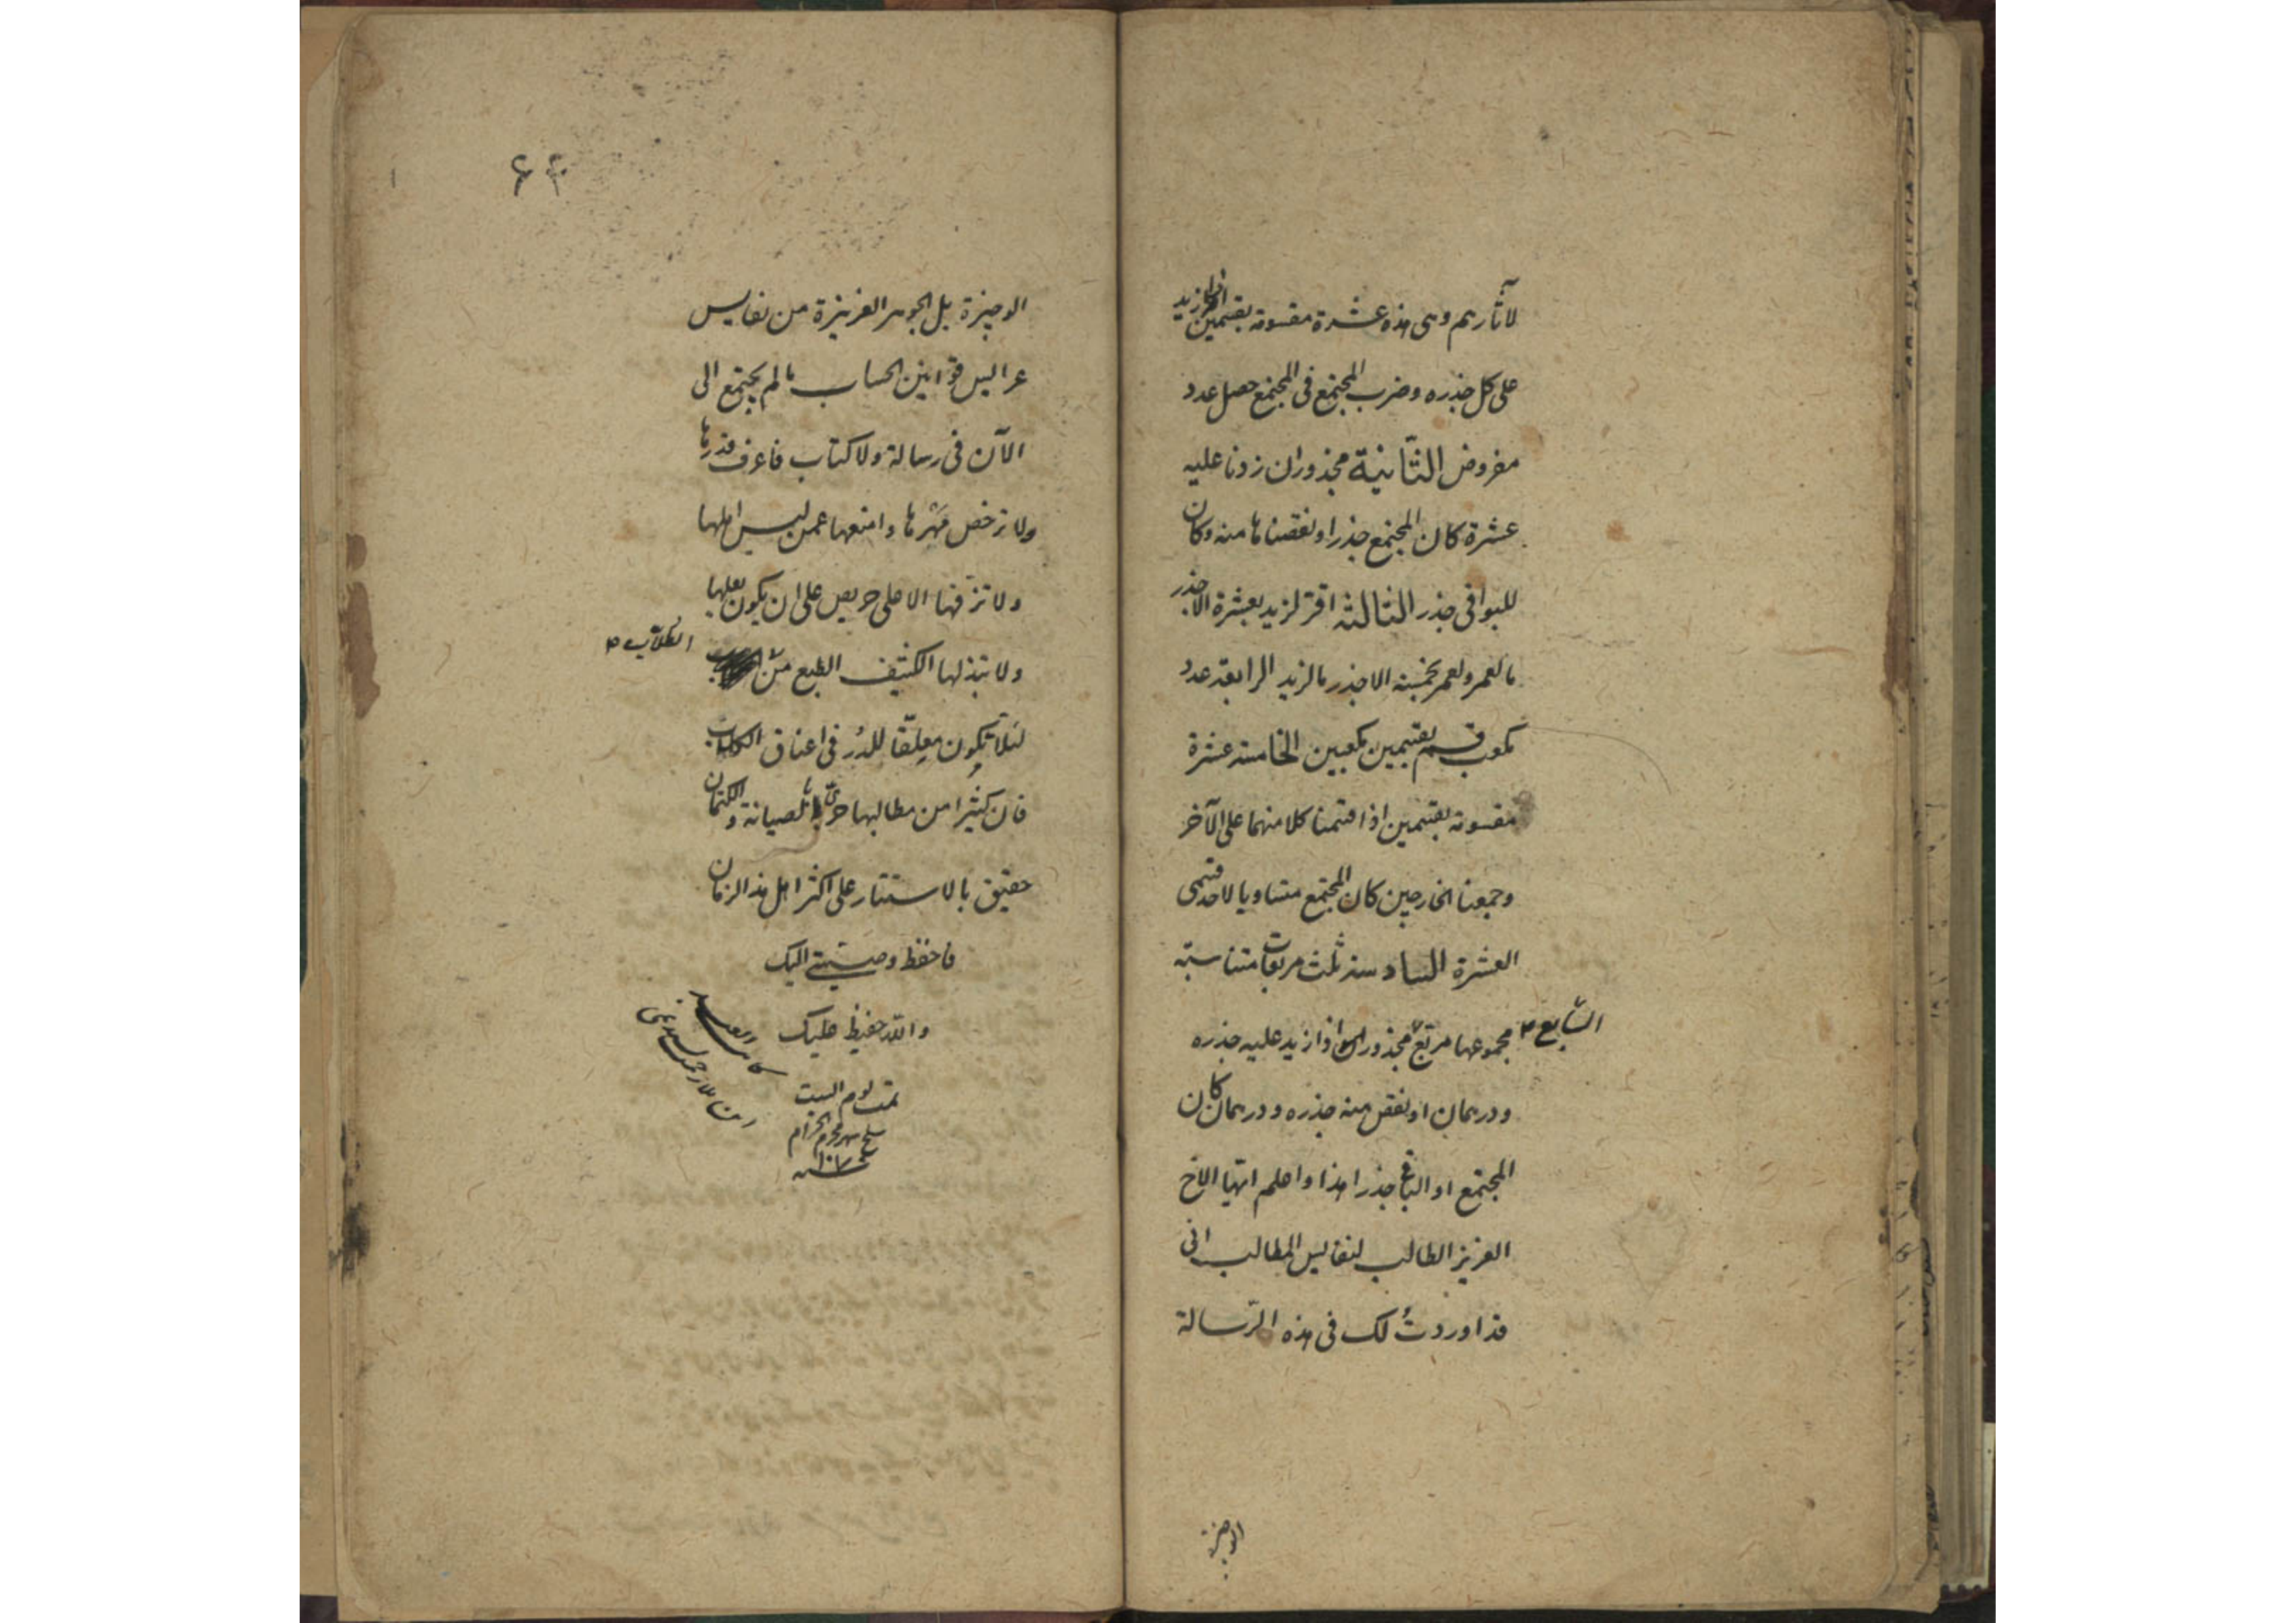 لآثارهم وهى هذه عشرة مقسومة بقسمين اذا زيد
على كل جذره وضرب المجتمع فى المجتمع حصل عدد
مفروض الثّانية مجذور ان زدنا عليه
عشرة كان المجتمع جذرا ونقصناها منه وكان
للبواقى جذر الثالثة اقر لزيد بعشرة الا جذر
ما لعمرو ولعمرو بخمسة الا جذر ما لزيد الرابعة عدد
مكعب قسم بقسمين مكعبين الخامسة عشرة
مقسومة بقسمين اذا قسمنا كلا منهما على الآخر
وجمعنا الخارجين كان المجتمع متساويا لاحد قسمى
العشرة السادسة ثلث مربعات متناسبة
مجموعها مربع مجذور اذا زيد عليه جذره
السّابع
ودرهمان او نقص منه جذره ودرهمان كان
المجتمع او الباقى جذرا هذا واعلم ايّها الاخ
العزيز الطالب لنفايس المطالب انى
قد اوردتُ لك فى هذه الرّسالة
الوجيزة
۶۴
الوجيزة بل الجوهر العزيزة من نفايس
عرايس قوانين الحساب ما لم يجتمع الى
الآن فى رسالة ولا كتاب فاعرف قدرها
ولا ترخص مَهْرها وامنعها عمن ليس اهلها
ولا تزفّها الا على حريص على ان يكون بعلها
ولا تبذلها الكثيف الطبع من
الطّلّاب
لئلّا تكون معلّقا للدُر فى اعناق الكلاب
فان كثيرا من مطالبها حرىّ بالصيانة والكتمان
حقيق بالاستتار على اكثر اهل هذا الزمان
فاحفظ وصيتى اليك
والله حفيظ عليك
تمت يوم السبت
سلخ شهر محرم الحرام